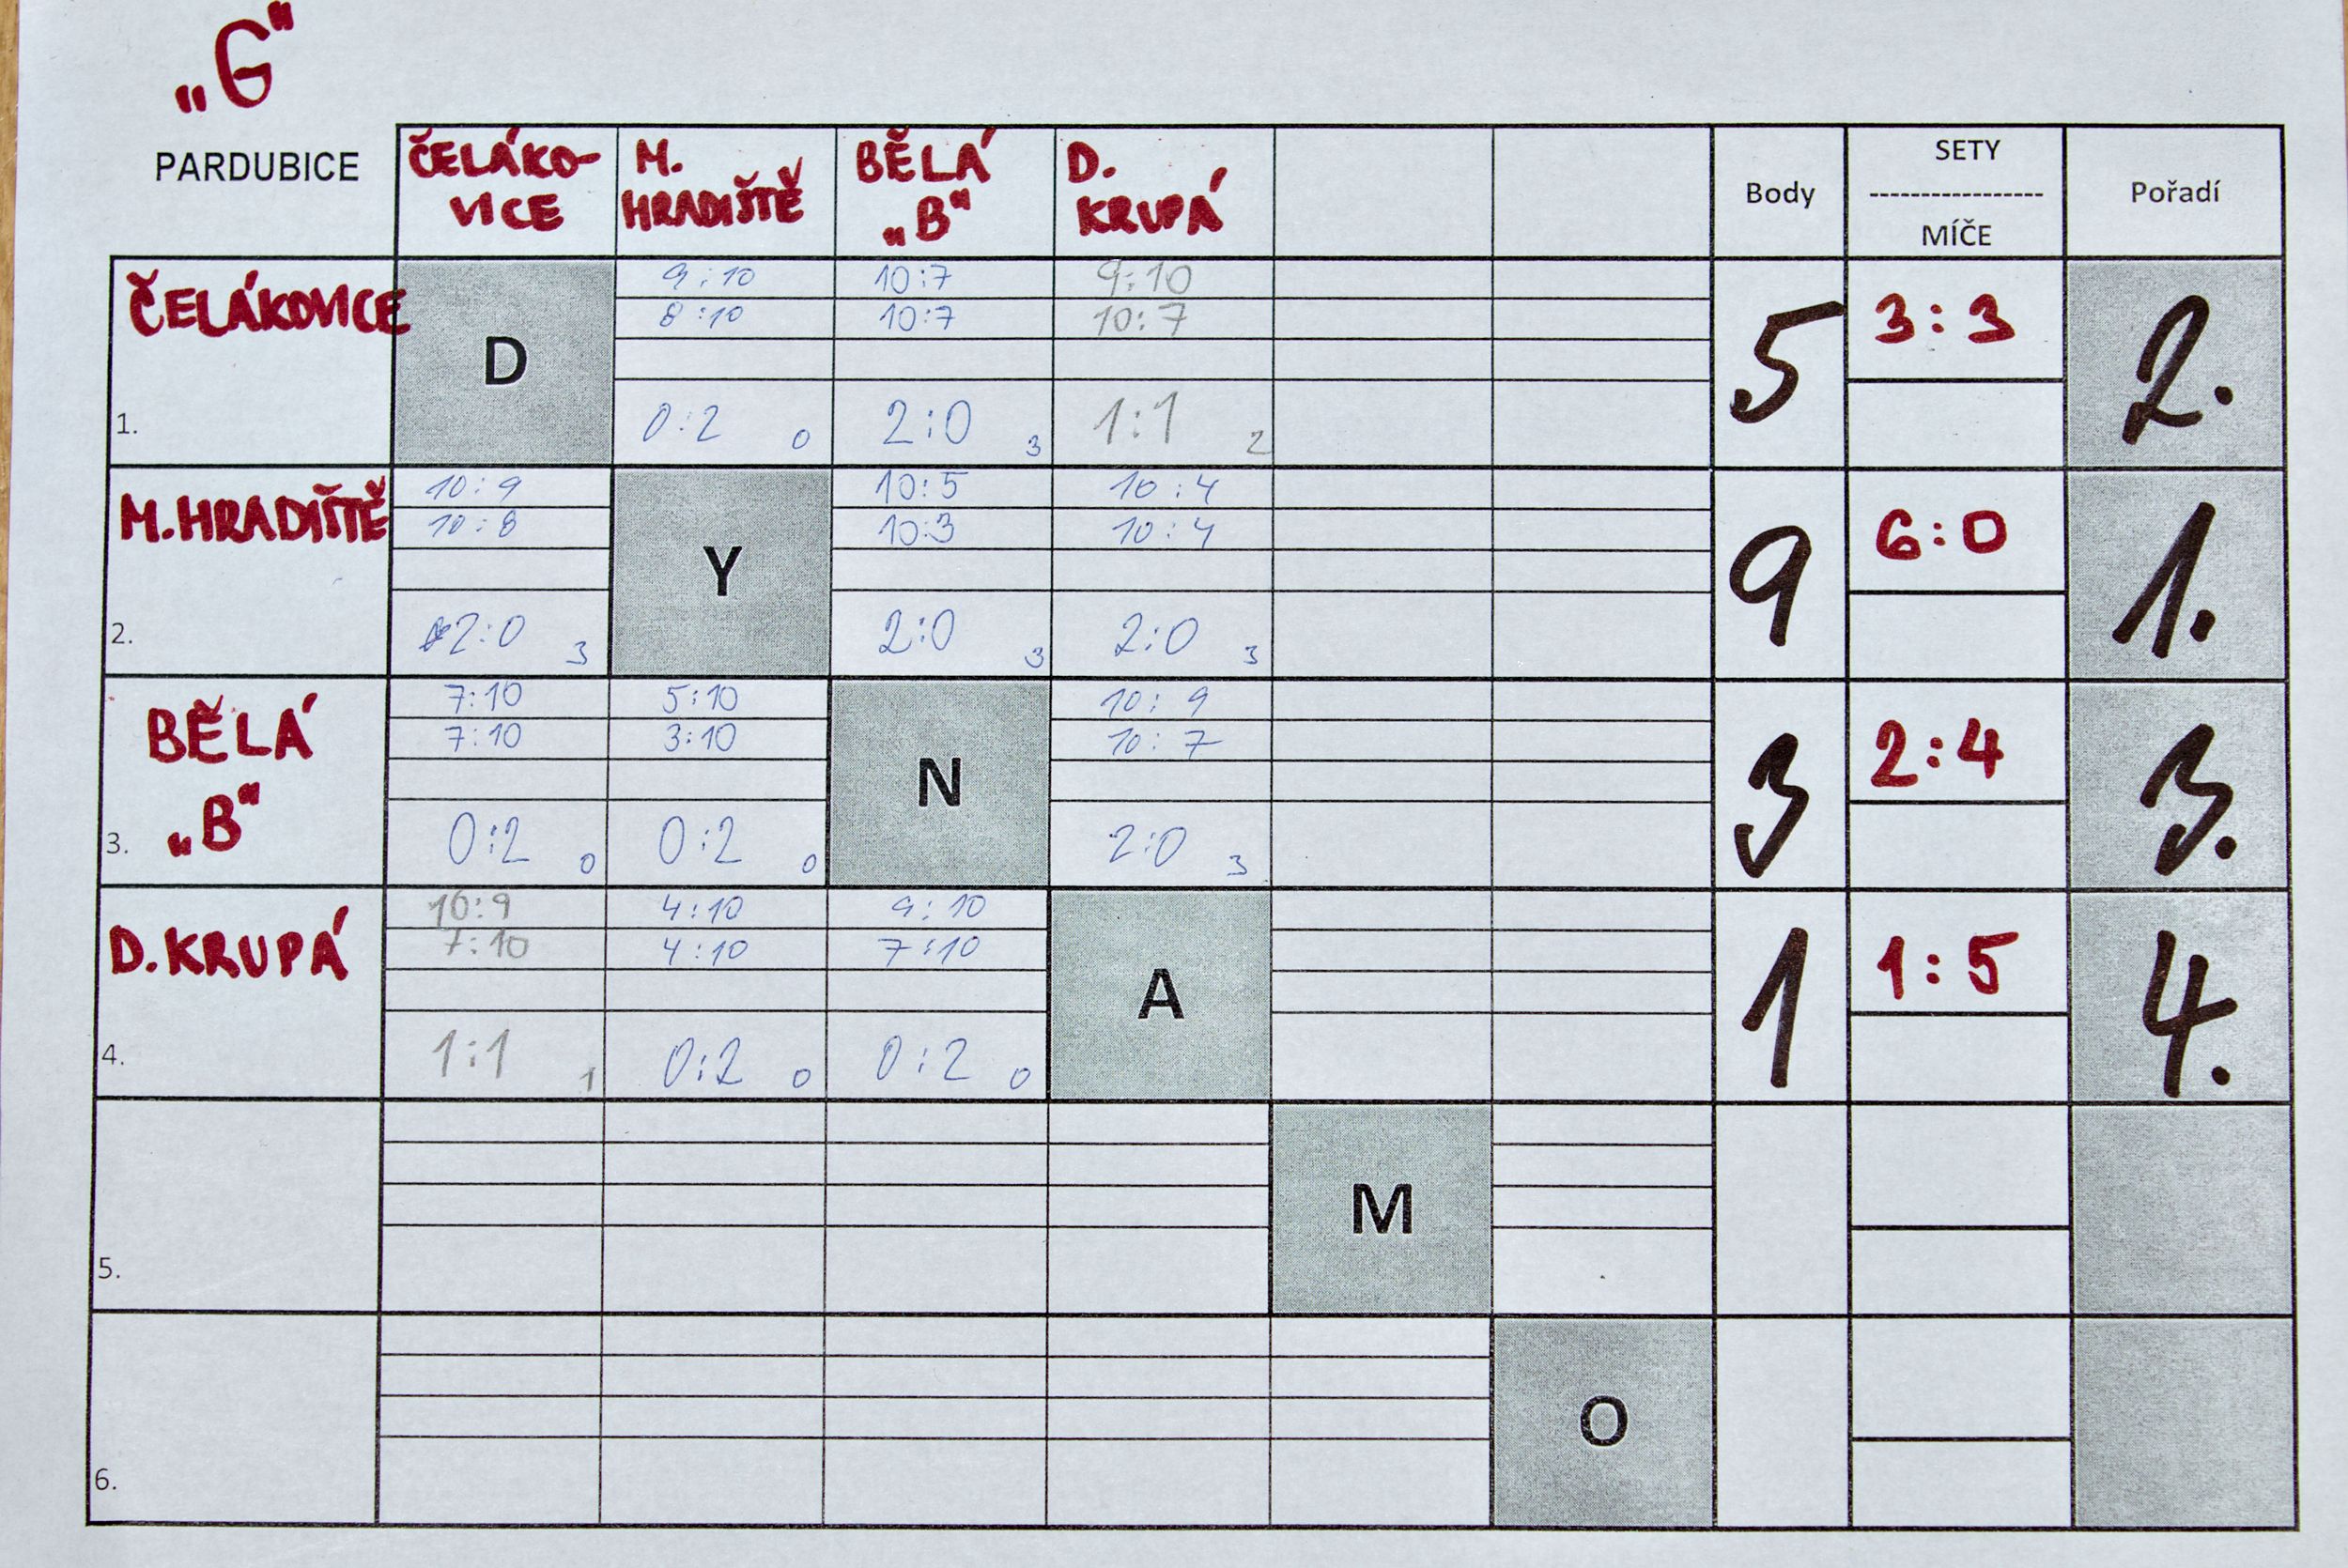 „G“
PARDUBICE
ČELÁKO-
VICE
M.
HRADIŠTĚ
BĚLÁ
„B“
D.
KRUPÁ
Body
SETY
-----------------
MÍČE
Pořadí
ČELÁKOVICE
1.
D
9:10
8:10
0:2 0
10:7
10:7
2:0 3
9:10
10:7
1:1 2
5
3:3
2.
M.HRADIŠTĚ
2.
10:9
10:8
2:0 3
Y
10:5
10:3
2:0 3
10:4
10:4
2:0 3
9
6:0
1.
BĚLÁ
„B“
3.
7:10
7:10
0:2 0
5:10
3:10
0:2 0
N
10:9
10:7
2:0 3
3
2:4
3.
D.KRUPÁ
4.
10:9
7:10
1:1 1
4:10
4:10
0:2 0
9:10
7:10
0:2 0
A
1
1:5
4.
5.
M
6.
O